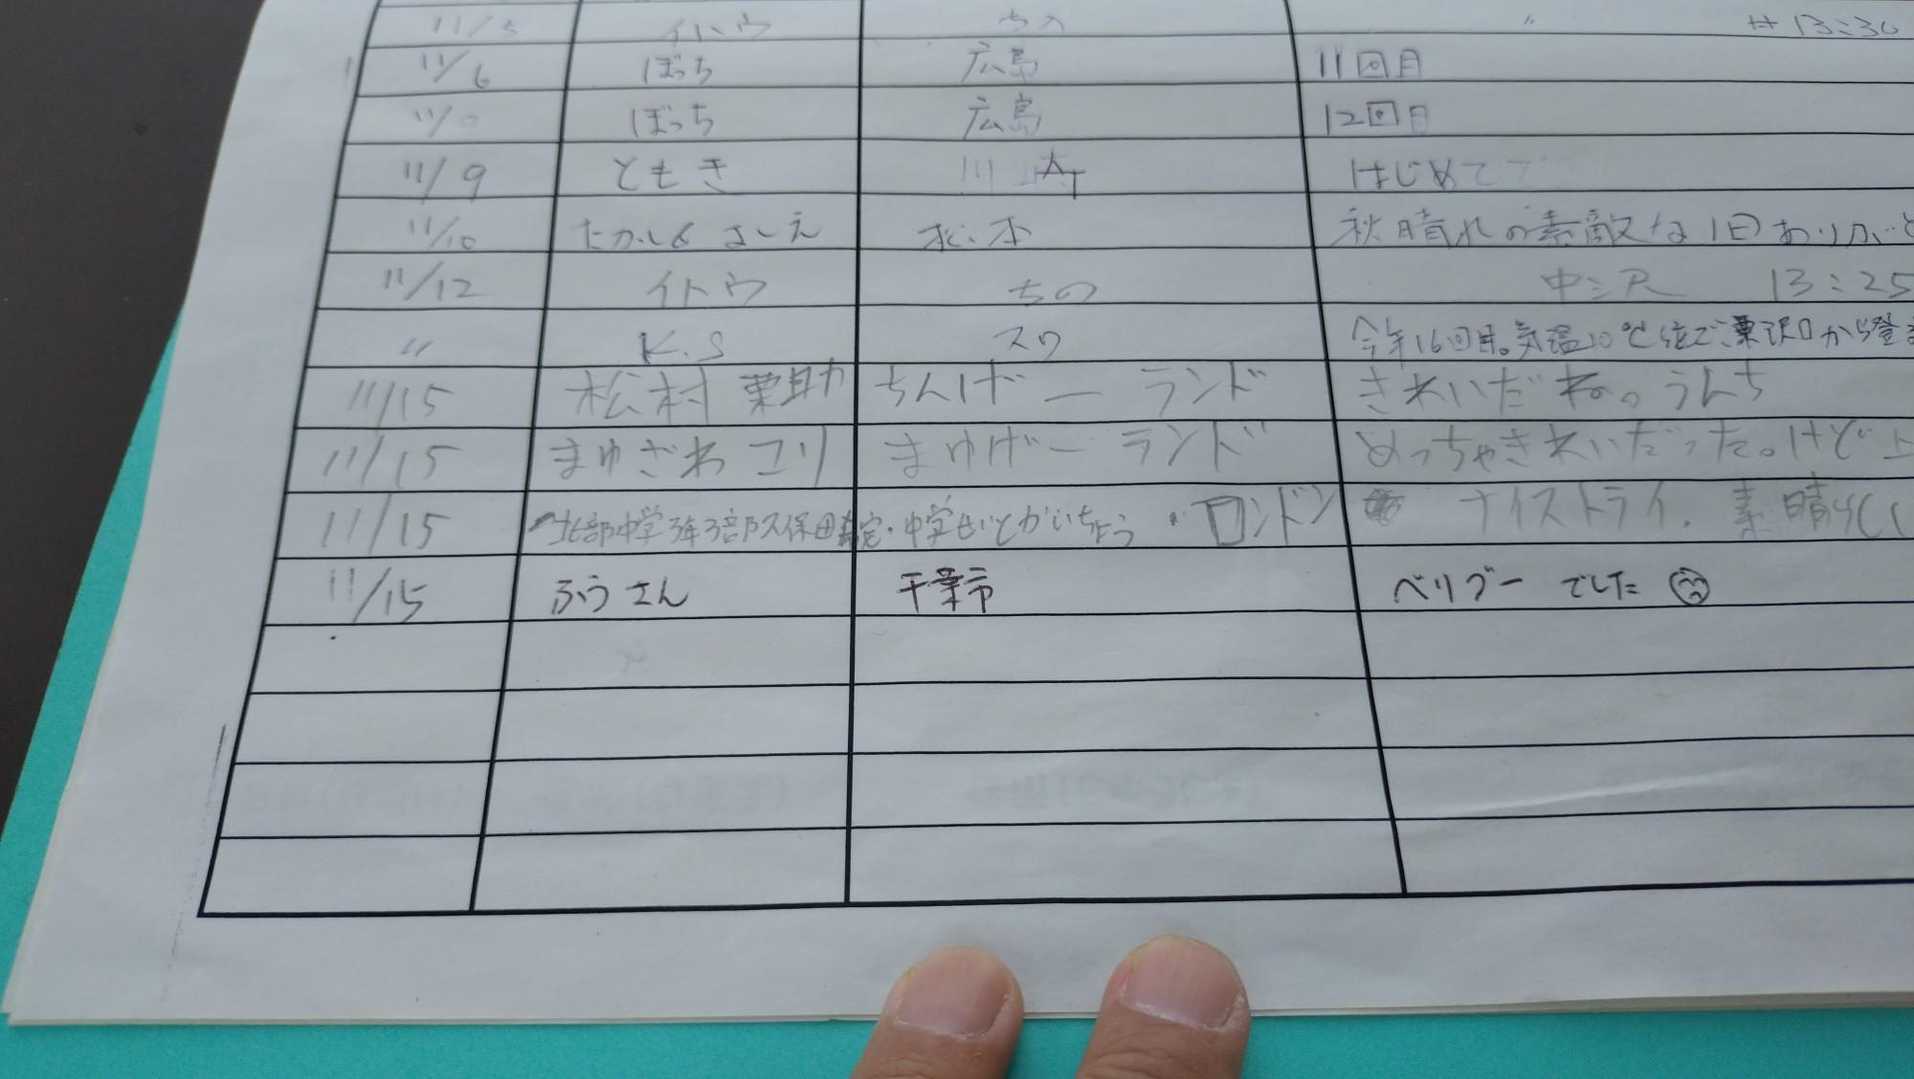 11/5 イトウ 〃 13:30
11/6 ぼっち 広島 11回目
11/ ぼっち 広島 12回目
11/9 ともき 川崎 はじめて
11/10 たかし& よしえ 松本 秋晴れの素敵な1日ありがと
11/12 イトウ ちの 中沢 13:25
〃 K.S スワ 今年16回目。気温10℃位で、栗沢口から登
11/15 松村 栗助 ちんげーランド きれいだね。うんち
11/15 まゆざわ コリ まゆげーランド めっちゃきれいだった。けど上
11/15 北部中学3年3部久保田 ・中学せいとかいちょう ・ロンドン ナイストライ. 素晴らし
11/15 ふうさん 千葉市 ベリグー でした